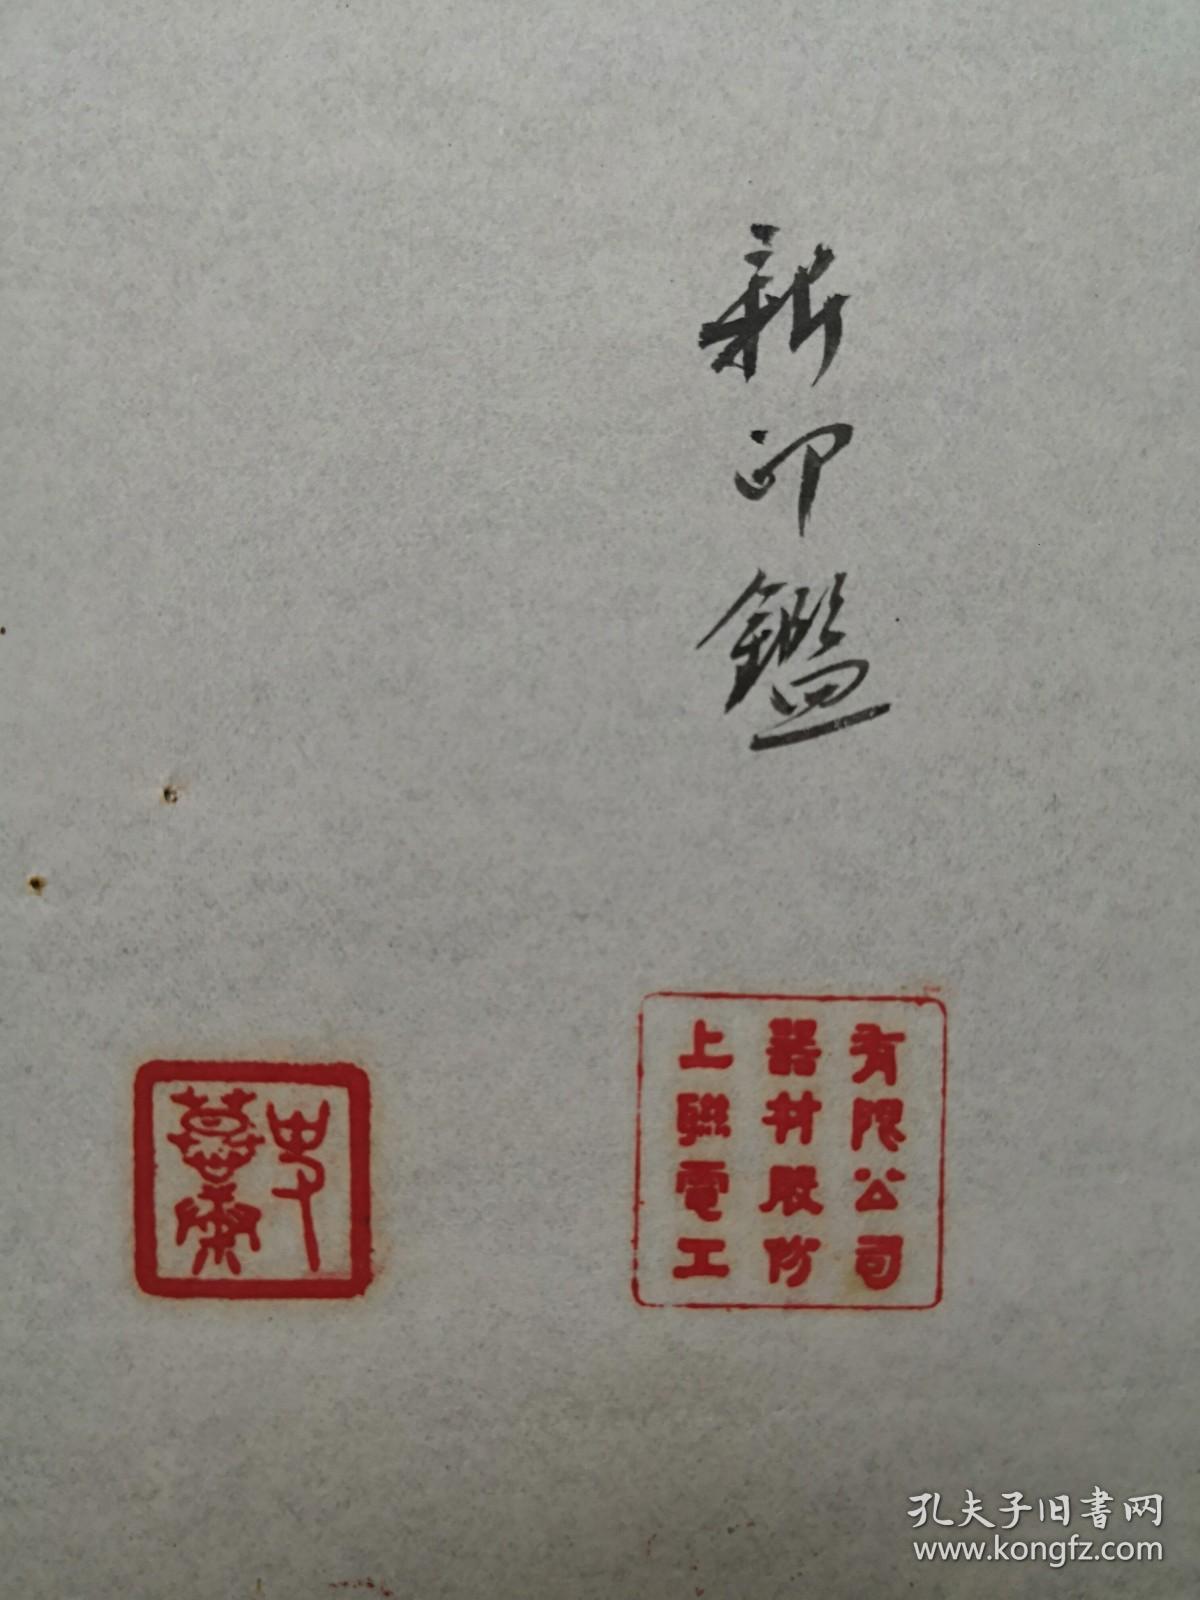 新印鑑
上聯電工
器材股份
有限公司
史
慕康
孔夫子旧书网
www.kongfz.com